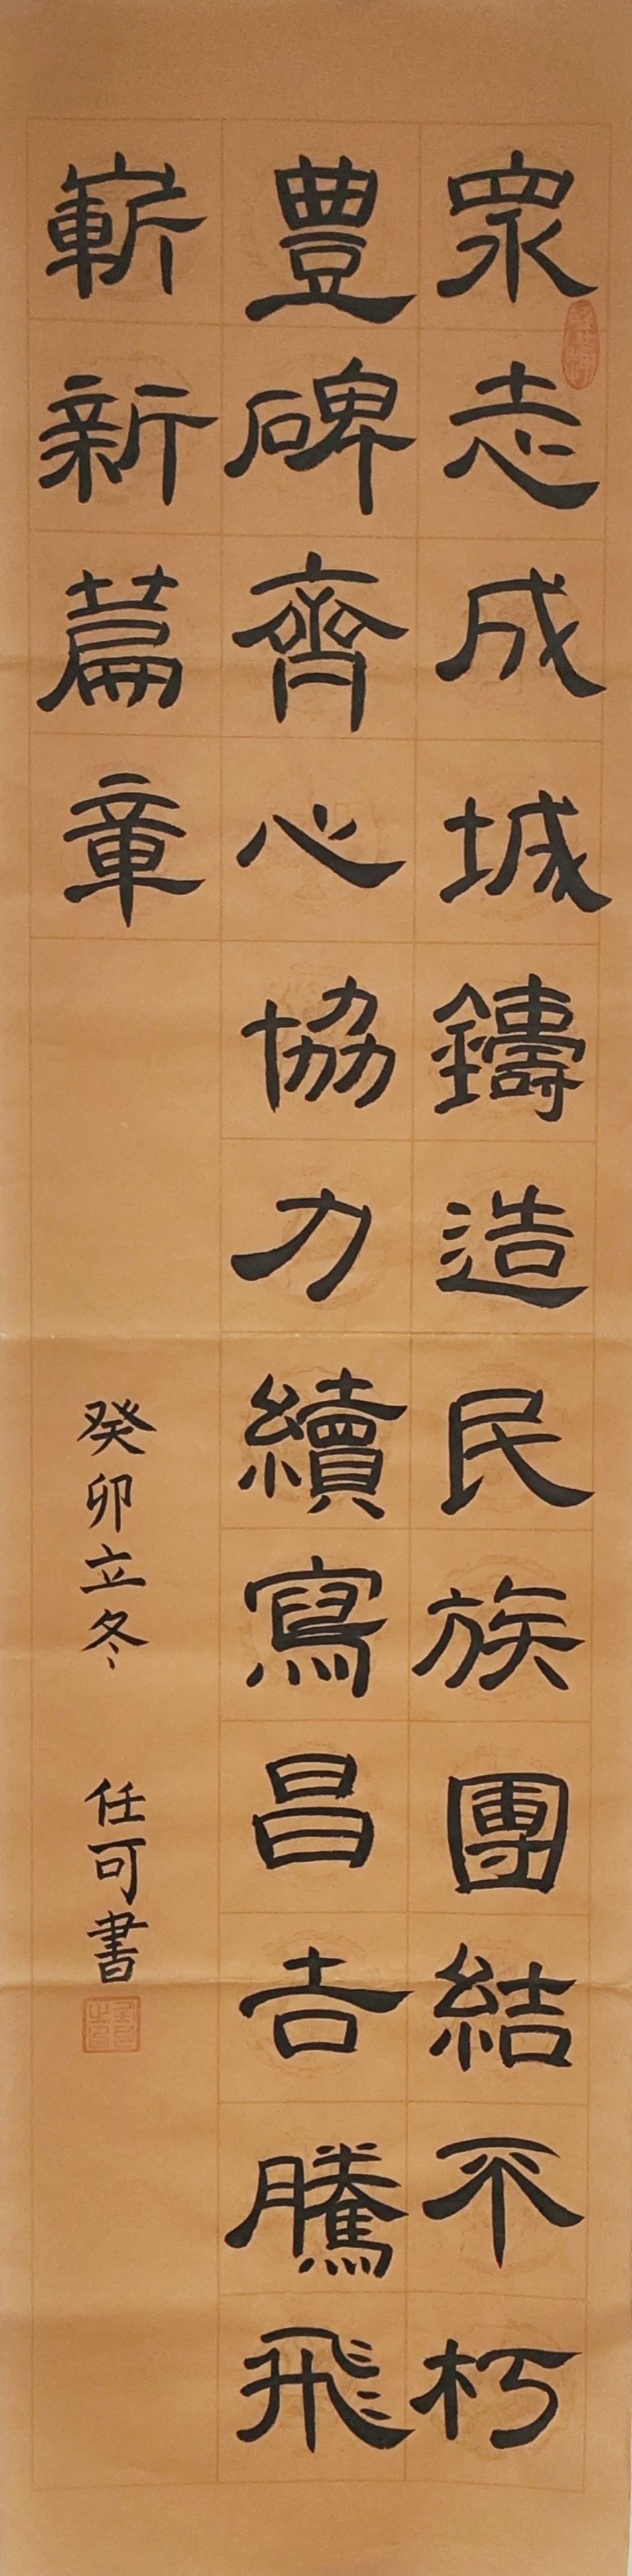 眾志成城鑄造民族團結不朽
豐碑齊心協力續寫昌吉騰飛
嶄新篇章
癸卯立冬 任可書